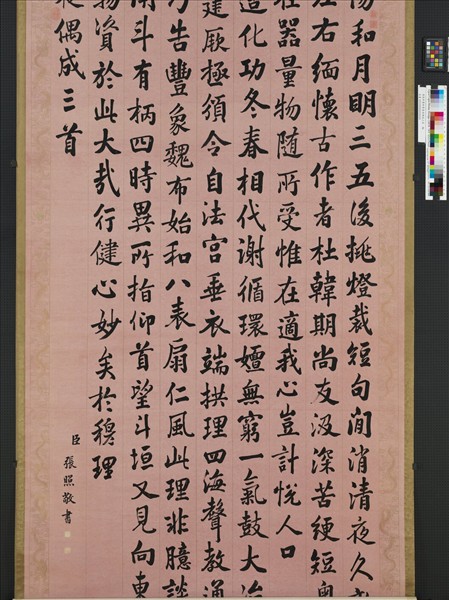 和月明三五後挑燈裁短句閒消清夜久
左右緬懷古作者杜韓期尚友汲深苦綆短奧
在器量物隨所受惟在適我心豈計悅人口
造化功冬春相代謝循環嬗無窮一氣鼓大冶
建厥極須令自法宮垂衣端拱理四海聲教通
告豐象魏布始和八表扇仁風此理非臆談
斗有柄四時異所指仰首望斗垣又見向東
物資於此大哉行健心妙矣於穆理
偶成三首
臣張照敬書